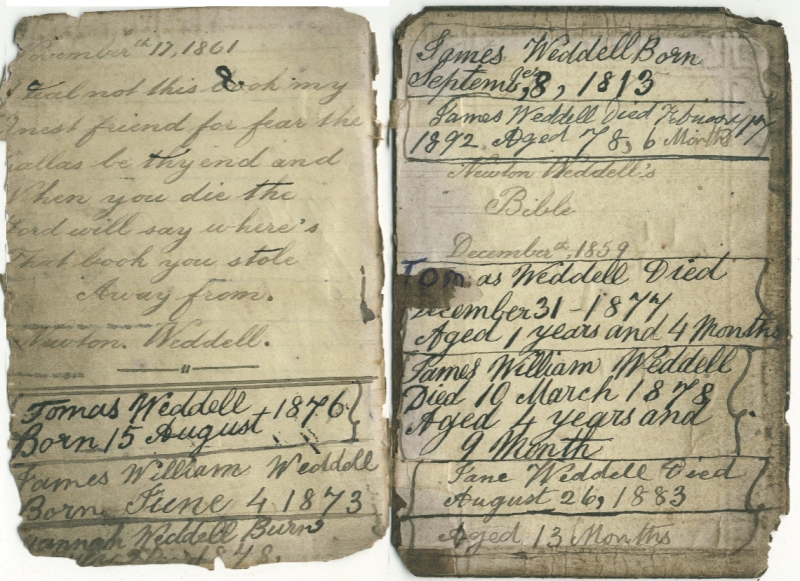 November th 17, 1861
Steal not this book my
onest friend for fear the
Gallas be thy end and
When you die the
Lord will say where's
That book you stole
Away from.
Newton. Weddell.
Tomas Weddell 1876
Born 15 August
James William Weddell
Born June 4 1873
Hannah Weddell Burn
1878.
James Weddell Born
Septembr 8, 1813
James Weddell Died February 17
1892 Aged 78, 6 Months
Newton Weddell's
Bible
December th, 1859
Tomas Weddell Died
December 31 - 1877
Aged 1 years and 4 Months
James William Weddell
Died 10 March 1878
Aged 4 years and
9 Month
Jane Weddell Died
August 26, 1883
Aged 13 Months